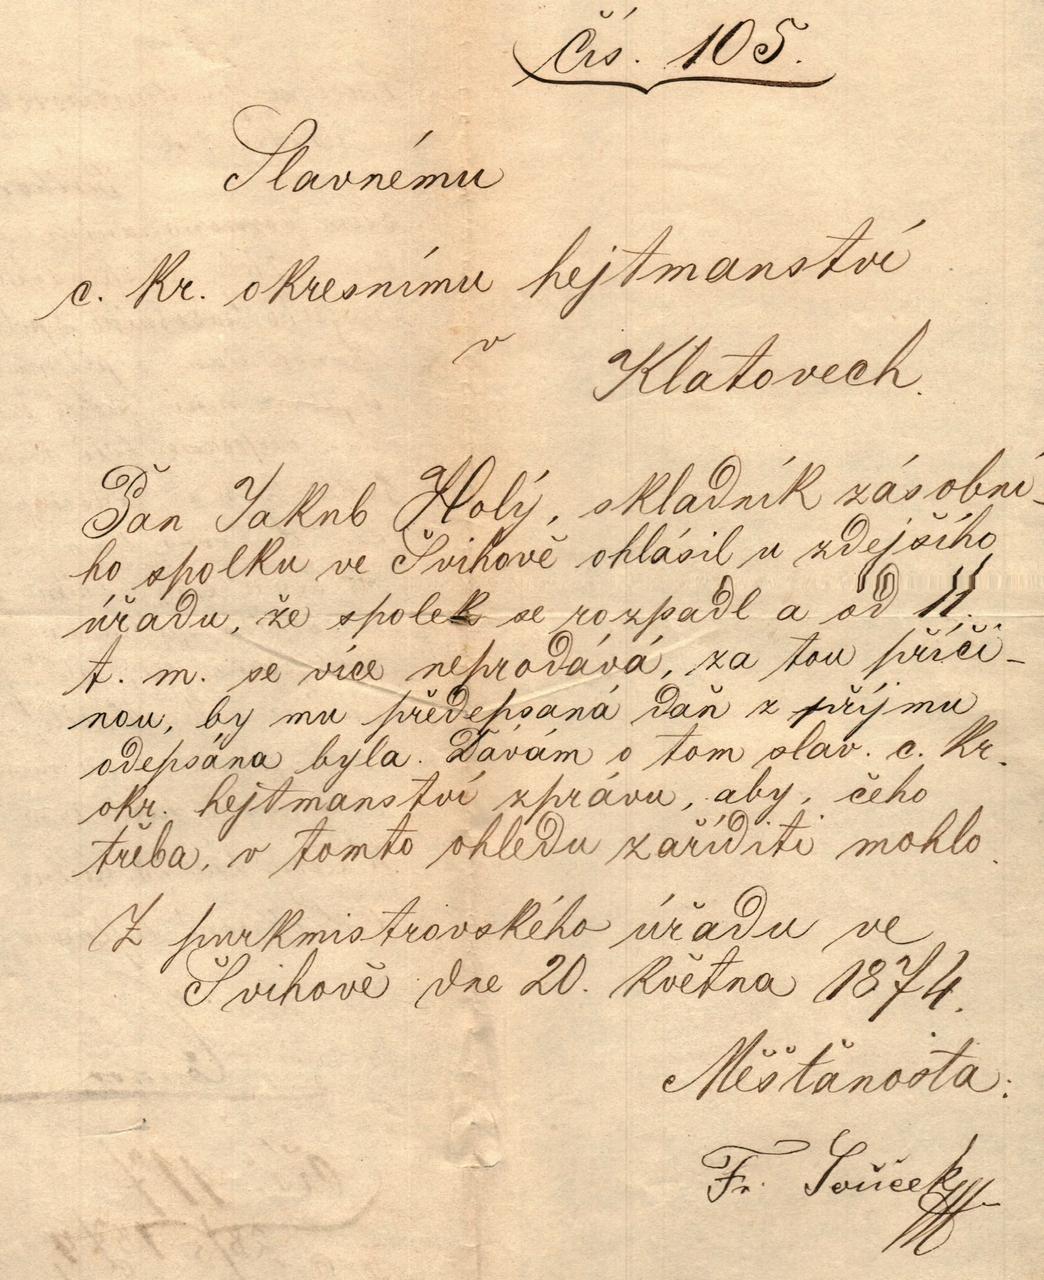 Čís. 105.
Slavnému
c. kr. okresnímu hejtmanství
v
Klatovech.
Pan Jakub Holý, skladník zásobní-
ho spolku ve Švihově ohlásil u zdejšího
úřadu, že spolek se rozpadl a od 11.
t. m. se více neprodává, za tou příči-
nou, by mu předepsaná daň z příjmu
odepsána byla. Dávám o tom slav. c. kr.
okr. hejtmanství zprávu, aby, čeho
třeba, v tomto ohledu zaříditi mohlo.
Z purkmistrovského úřadu ve
Švihově dne 20. května 1874.
Měšťanosta:
Fr. Souček